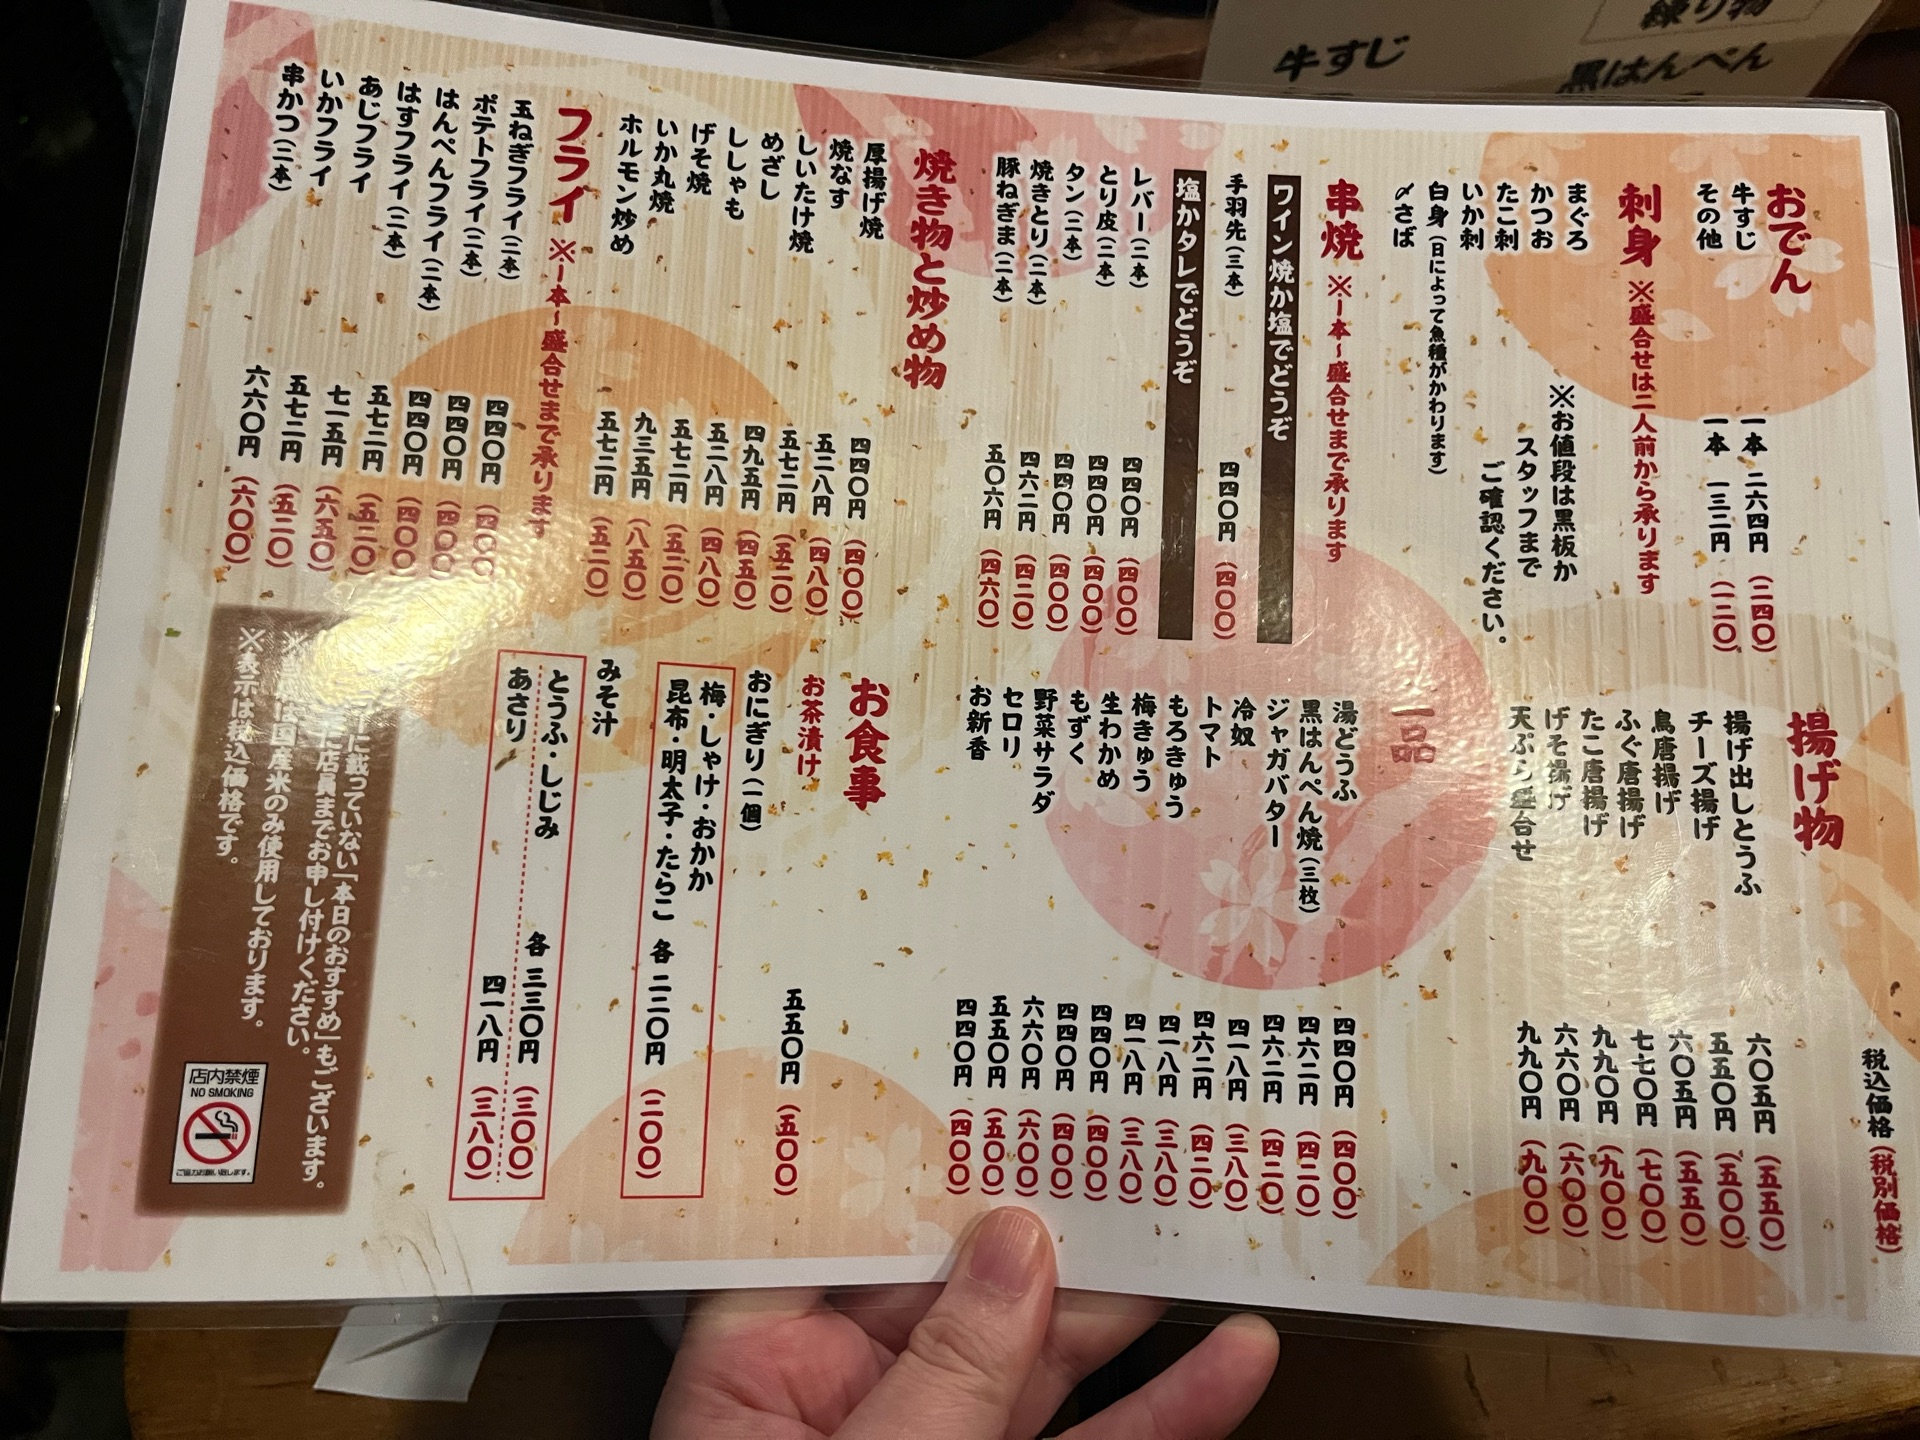 練り物
牛すじ
黒はんぺん
おでん
牛すじ 一本 二六四円 (二四〇)
その他 一本 一三二円 (一二〇)
刺身 ※盛合せは二人前から承ります
まぐろ
かつお
たこ刺
いか刺
白身(日によって魚種がかわります)
〆さば
※お値段は黒板か
スタッフまで
ご確認ください。
串焼 ※一本~盛合せまで承ります
ワイン焼か塩でどうぞ
手羽先(三本) 四四〇円 (四〇〇)
塩かタレでどうぞ
レバー(二本) 四四〇円 (四〇〇)
とり皮(二本) 四四〇円 (四〇〇)
タン(二本) 四四〇円 (四〇〇)
焼きとり(二本) 四六二円 (四二〇)
豚ねぎま(二本) 五〇六円 (四六〇)
焼き物と炒め物
厚揚げ焼 四四〇円 (四〇〇)
焼なす 五二八円 (四八〇)
しいたけ焼 五七二円 (五二〇)
めざし 四九五円 (四五〇)
ししゃも 五二八円 (四八〇)
げそ焼 五七二円 (五二〇)
いか丸焼 九三五円 (八五〇)
ホルモン炒め 五七二円 (五二〇)
フライ ※一本~盛合せまで承ります
玉ねぎフライ(二本) 四四〇円 (四〇〇
ポテトフライ(二本) 四四〇円 (四〇〇
はんぺんフライ(二本) 四四〇円 (四〇〇)
はすフライ(二本) 五七二円 (五二〇)
あじフライ 七一五円 (六五〇)
いかフライ 五七二円 (五二〇)
串かつ(二本) 六六〇円 (六〇〇)
税込価格(税別価格)
揚げ物
揚げ出しとうふ 六〇五円 (五五〇)
チーズ揚げ 五五〇円 (五〇〇)
鳥唐揚げ 六〇五円 (五五〇)
ふぐ唐揚げ 七七〇円 (七〇〇)
たこ唐揚げ 九九〇円 (九〇〇)
げそ揚げ 六六〇円 (六〇〇)
天ぷら盛合せ 九九〇円 (九〇〇)
一品
湯どうふ 四四〇円 (四〇〇)
黒はんぺん焼(三枚) 四六二円 (四二〇)
ジャガバター 四六二円 (四二〇)
冷奴 四一八円 (三八〇)
トマト 四六二円 (四二〇)
もろきゅう 四一八円 (三八〇)
梅きゅう 四一八円 (三八〇)
生わかめ 四四〇円 (四〇〇)
もずく 四四〇円 (四〇〇)
野菜サラダ 六六〇円 (六〇〇)
セロリ 五五〇円 (五〇〇)
お新香 四四〇円 (四〇〇)
お食事
お茶漬け 五五〇円 (五〇〇)
おにぎり(一個)
梅・しゃけ・おかか
昆布・明太子・たらこ 各 二二〇円 (二〇〇)
みそ汁
とうふ・しじみ 各 三三〇円 (三〇〇)
あさり 四一八円 (三八〇)
に載っていない「本日のおすすめ」もございます。
に店員までお申し付けください。
※ は国産米のみ使用しております。
※表示は税込価格です。
店内禁煙
NO SMOKING
ご協力お願い致します。